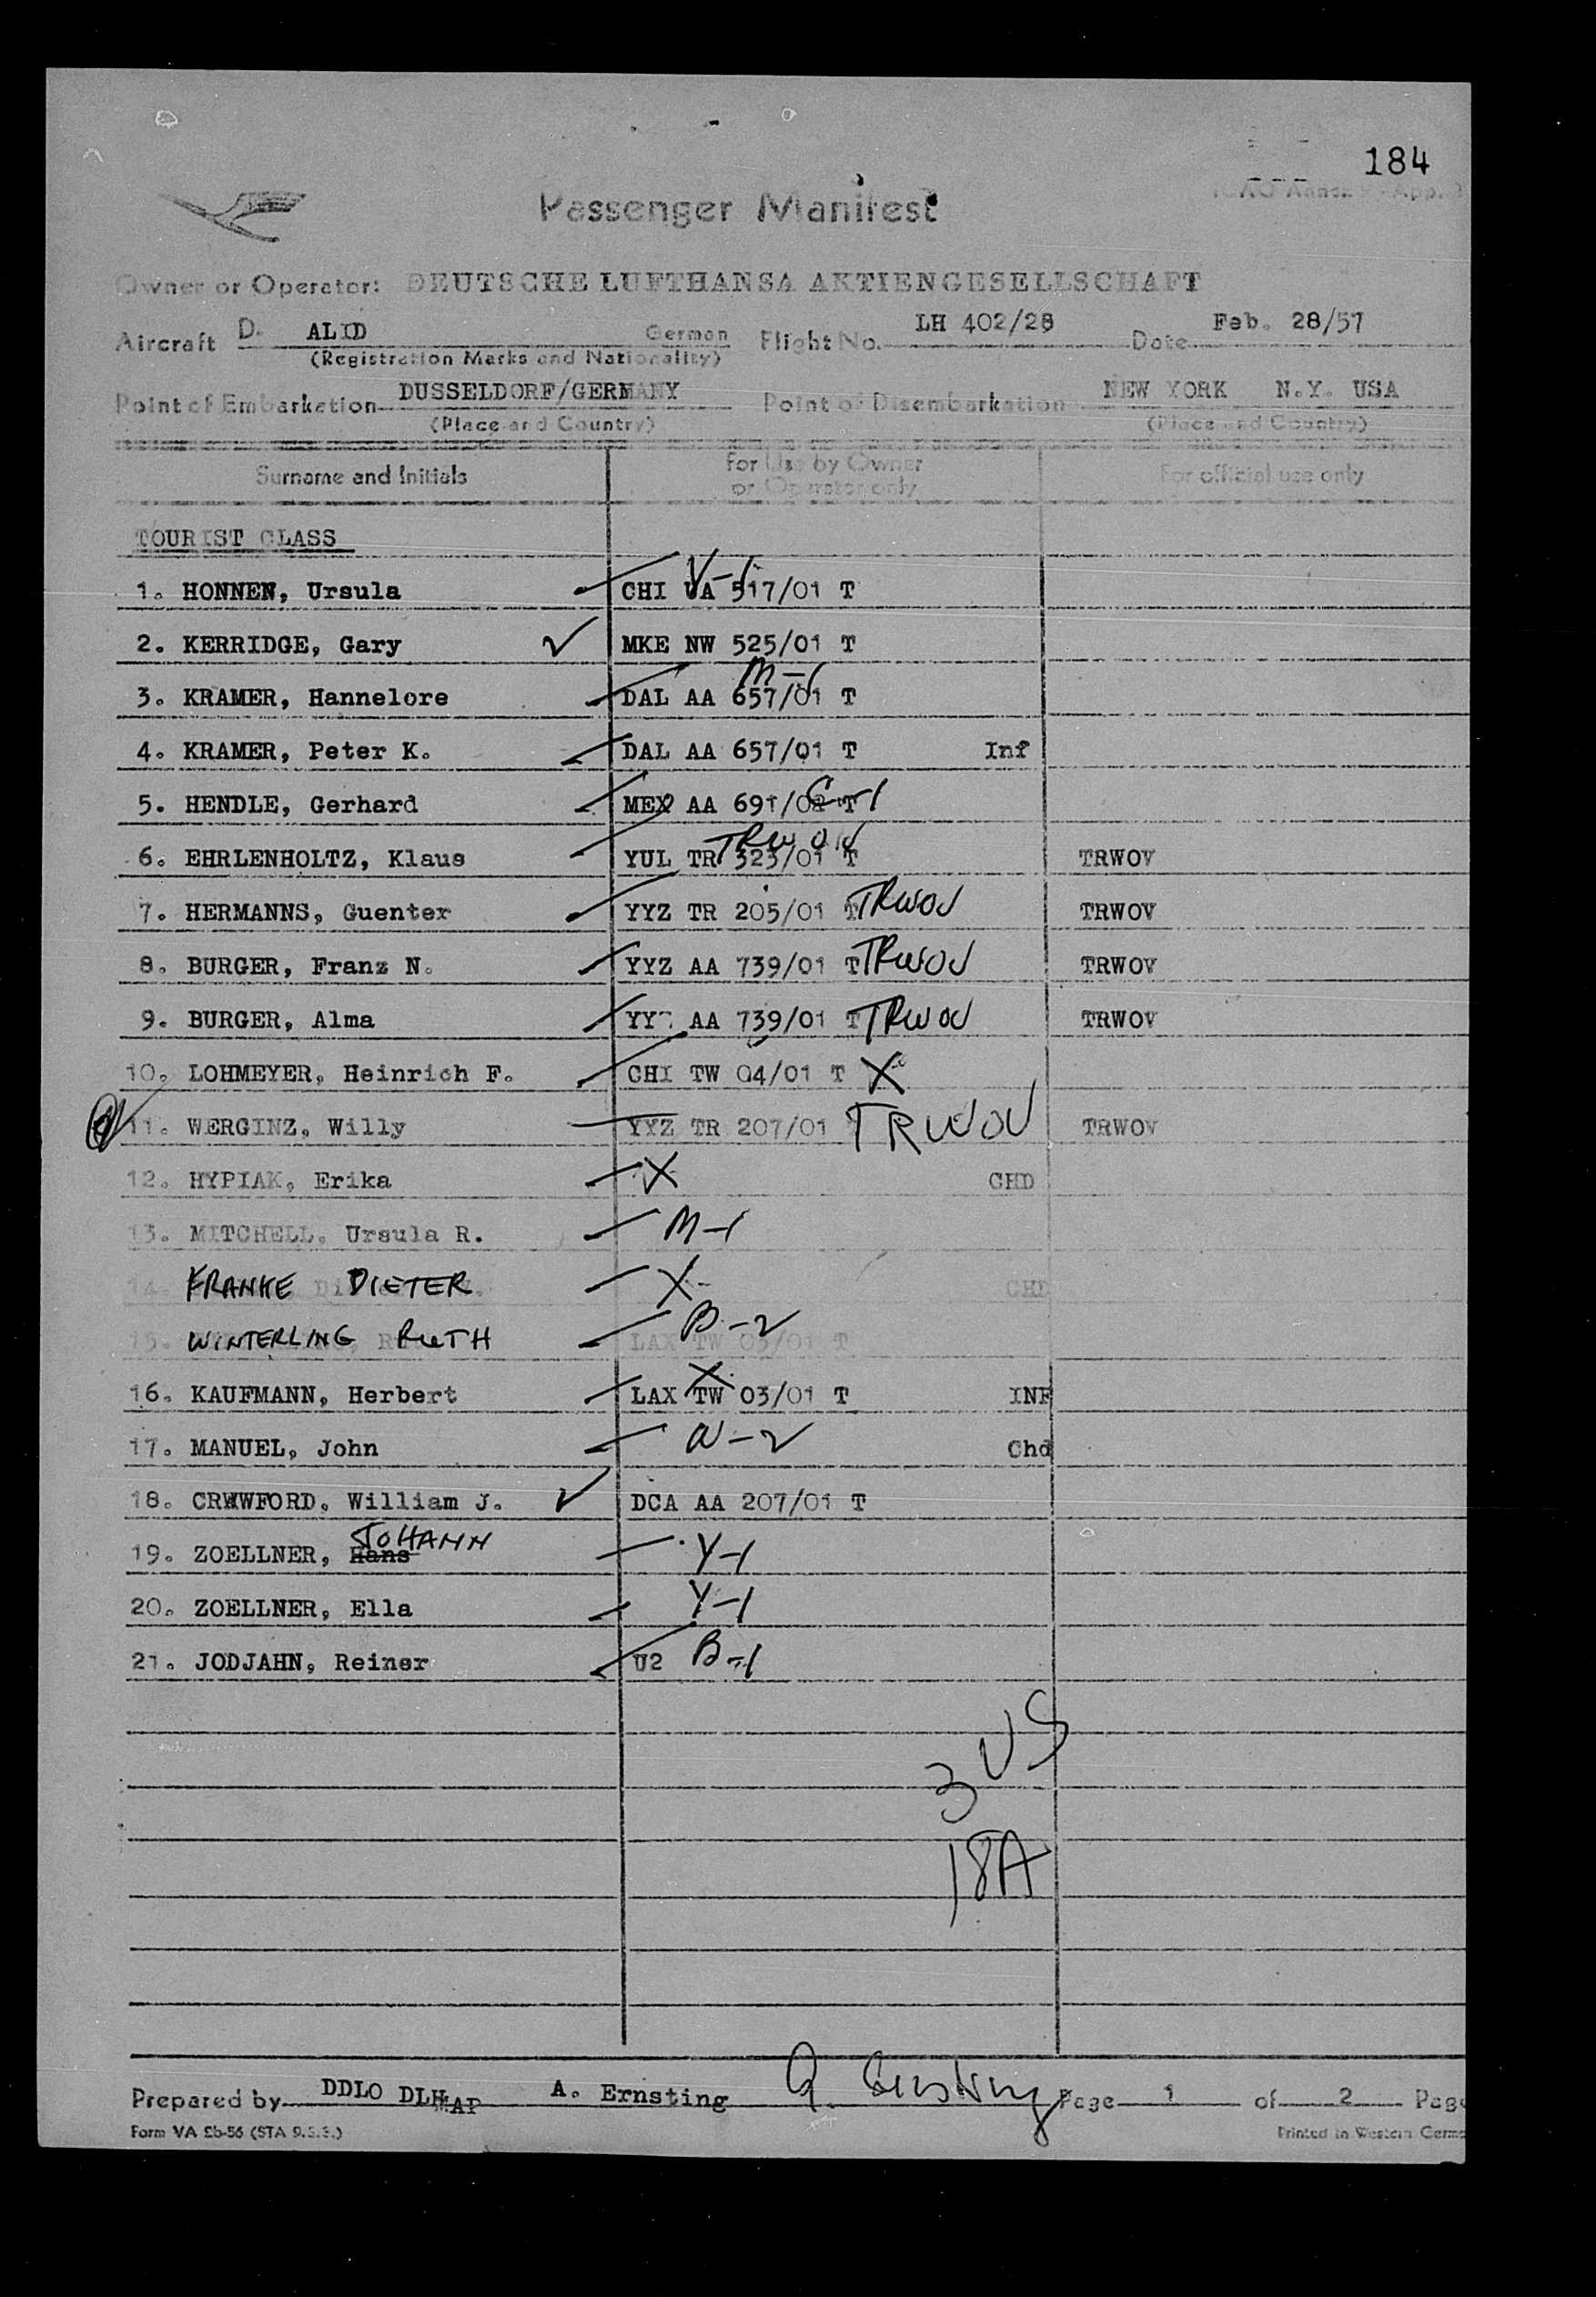 184
Passenger Manifest
Owner or Operator: DEUTSCHE LUFTHANSA AKTIENGESELLSCHAFT
Aircraft D- ALID German Flight No. LH 402/28 Date Feb. 28/57
(Registration Marks and Nationality)
Point of Embarkation DUSSELDORF/GERMANY Point of Disembarkation NEW YORK N.Y. USA
(Place and Country) (Place and Country)
Surname and Initials For Use by Owner or Operator only For official use only
TOURIST CLASS
1. HONNEN, Ursula CHI UA 517/01 T V-1
2. KERRIDGE, Gary MKE NW 525/01 T
3. KRAMER, Hannelore DAL AA 657/01 T M-1
4. KRAMER, Peter K. DAL AA 657/01 T Inf
5. HENDLE, Gerhard MEX AA 691/02 T C-1
6. EHRLENHOLTZ, Klaus YUL TR 323/01 T TRWOV TRWOV
7. HERMANNS, Guenter YYZ TR 205/01 T TRWOV TRWOV
8. BURGER, Franz N. YYZ AA 739/01 T TRWOV TRWOV
9. BURGER, Alma YYZ AA 739/01 T TRWOV TRWOV
10. LOHMEYER, Heinrich F. CHI TW 04/01 T X
11. WERGINZ, Willy YYZ TR 207/01 TRWOV TRWOV
12. HYPIAK, Erika X CHD
13. MITCHELL, Ursula R. M-1
14. FRANKE DIETER X CHD
15. WINTERLING RUTH LAX TW 03/01 T B-2
16. KAUFMANN, Herbert LAX TW 03/01 T X INF
17. MANUEL, John W-2 Chd
18. CRWWFORD, William J. DCA AA 207/01 T
19. ZOELLNER, Hans JOHANN Y-1
20. ZOELLNER, Ella Y-1
21. JODJAHN, Reiner U2 B-1
3 US
18A
Prepared by DDLO DLH AP A. Ernsting A. Ernsting Page 1 of 2 Page
Form VA 2b-56 (STA 9.3.3.) Printed in Western Germa